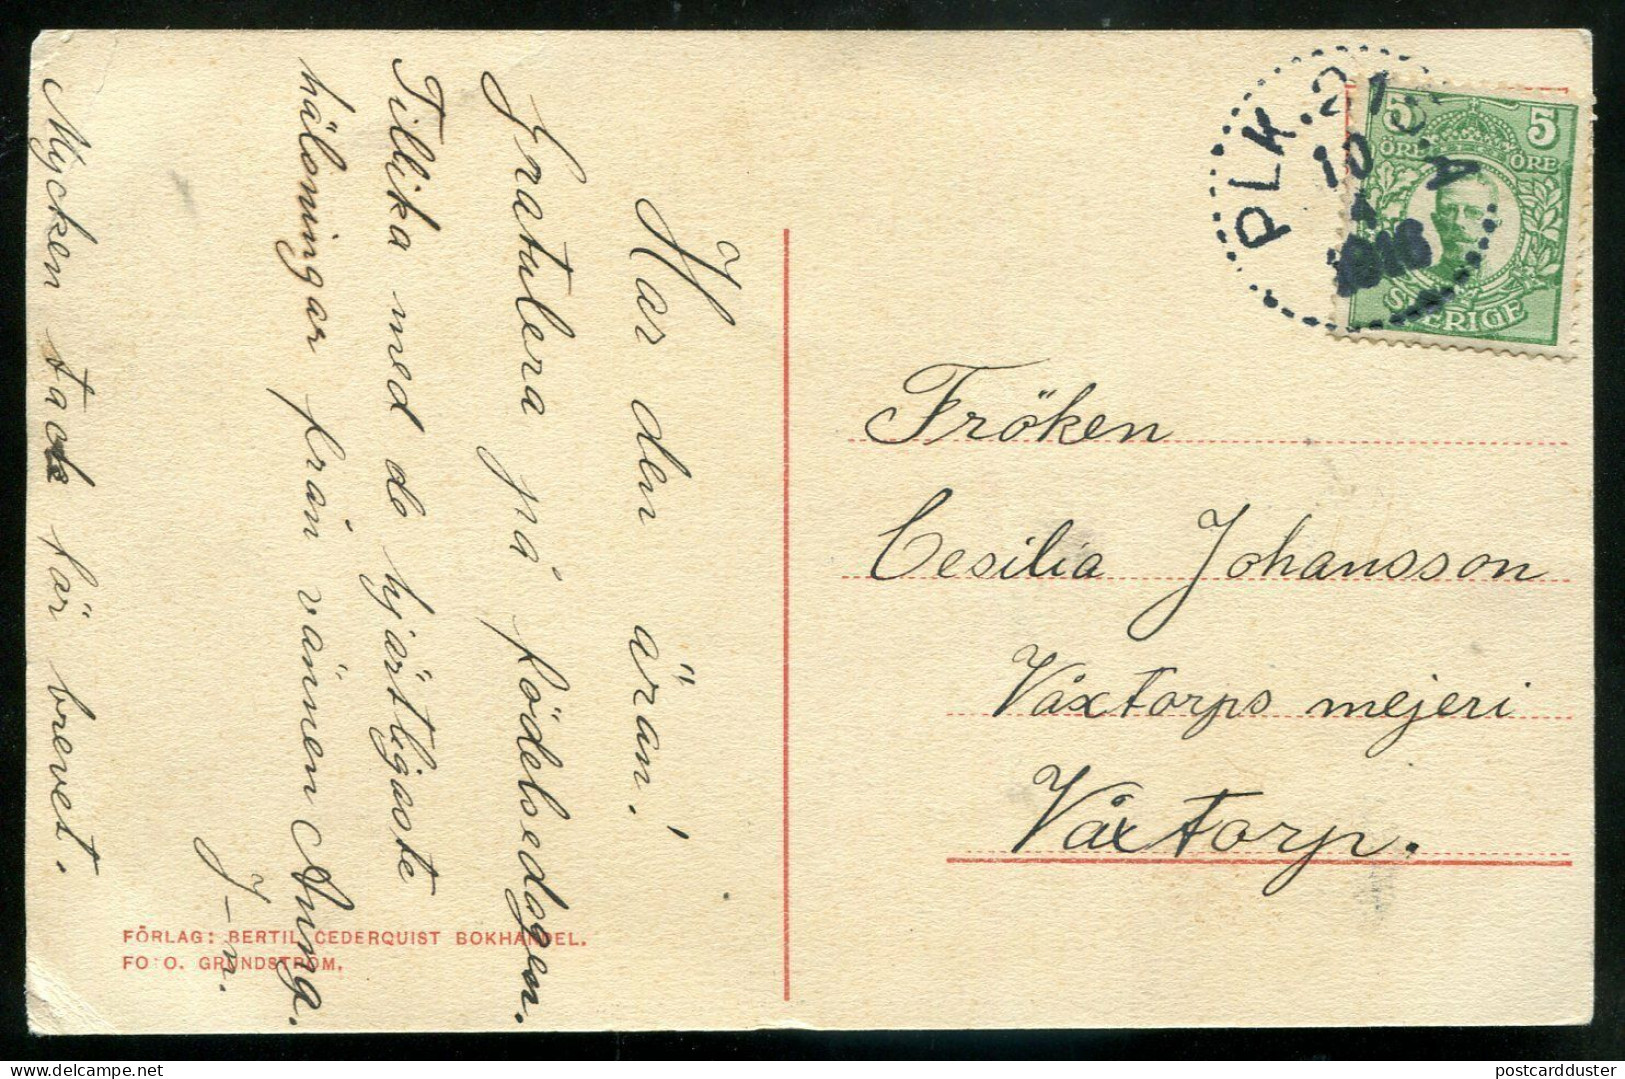 Har den äran!
Gratulera på födelsedagen.
Tillika med de hjärtligaste
hälsningar från vännen
J–n.
Mycken tack för brevet.
FÖRLAG: BERTIL CEDERQUIST BOKHANDEL.
FOTO O. GRUNDSTRÖM.
PLK. 213.A
10
4
1916
5 5
ÖRE ÖRE
SVERIGE
Fröken
Cesilia Johansson
Våxtorps mejeri
Våxtorp.
postcardduster